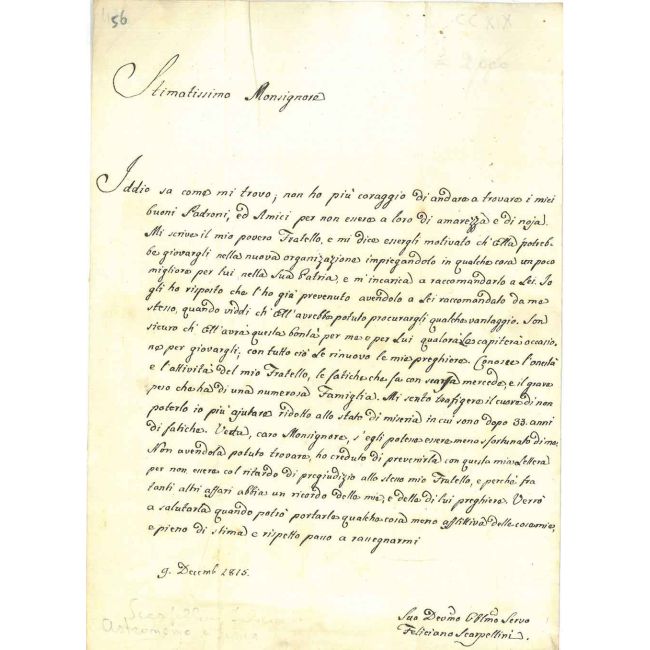 56
CCXIX
2000
Stimatissimo Monsignore
Iddio sa come mi trovo; non ho più coraggio di andare a trovare i miei
buoni Padroni, ed Amici per non essere a loro di amarezza e di noja.
Mi scrive il mio povero Fratello, e mi dice essergli motivato ch'Ella potreb-
be giovargli nella nuova organizazione impiegandolo in qualche cosa un poco
migliore per lui nella sua Patria, e m'incarica a raccomandarlo a Lei. Io
gli ho risposto che l'ho già prevenuto avendolo a Lei raccomandato da me
stesso, quando viddi ch'Ell'avrebbe potuto procurargli qualche vantaggio. Son
sicuro ch'Ell'avrà questa bontà per me e per Lui qualora Le capiterà occasio-
ne per giovargli; con tutto ciò Le rinuovo le mie preghiere. Conosce l'onestà
e l'attività del mio Fratello, le fatiche che fa con scarsa mercede, e il grave
peso che ha di una numerosa Famiglia. Mi sento trafigere il cuore di non
poterlo io più ajutare ridotto allo stato di miseria in cui sono dopo 33 anni
di fatiche. Veda, caro Monsignore, s'egli poteva essere meno sfortunato di me.
Non avendola potuto trovare, ho creduto di prevenirla con questa mia Lettera
per non essere col ritardo di pregiudizio allo stesso mio Fratello, e perchè fra
tanti altri affari abbia un ricordo delle mie, e delle di lui preghiere. Verrò
a salutarla quando potrò portarle qualche cosa meno afflittiva delle cose mie;
e pieno di stima e rispetto passo a rassegnarmi
9. Decemb 1815.
Suo Devmo Obblmo Servo
Feliciano Scarpellini.
Astronomo